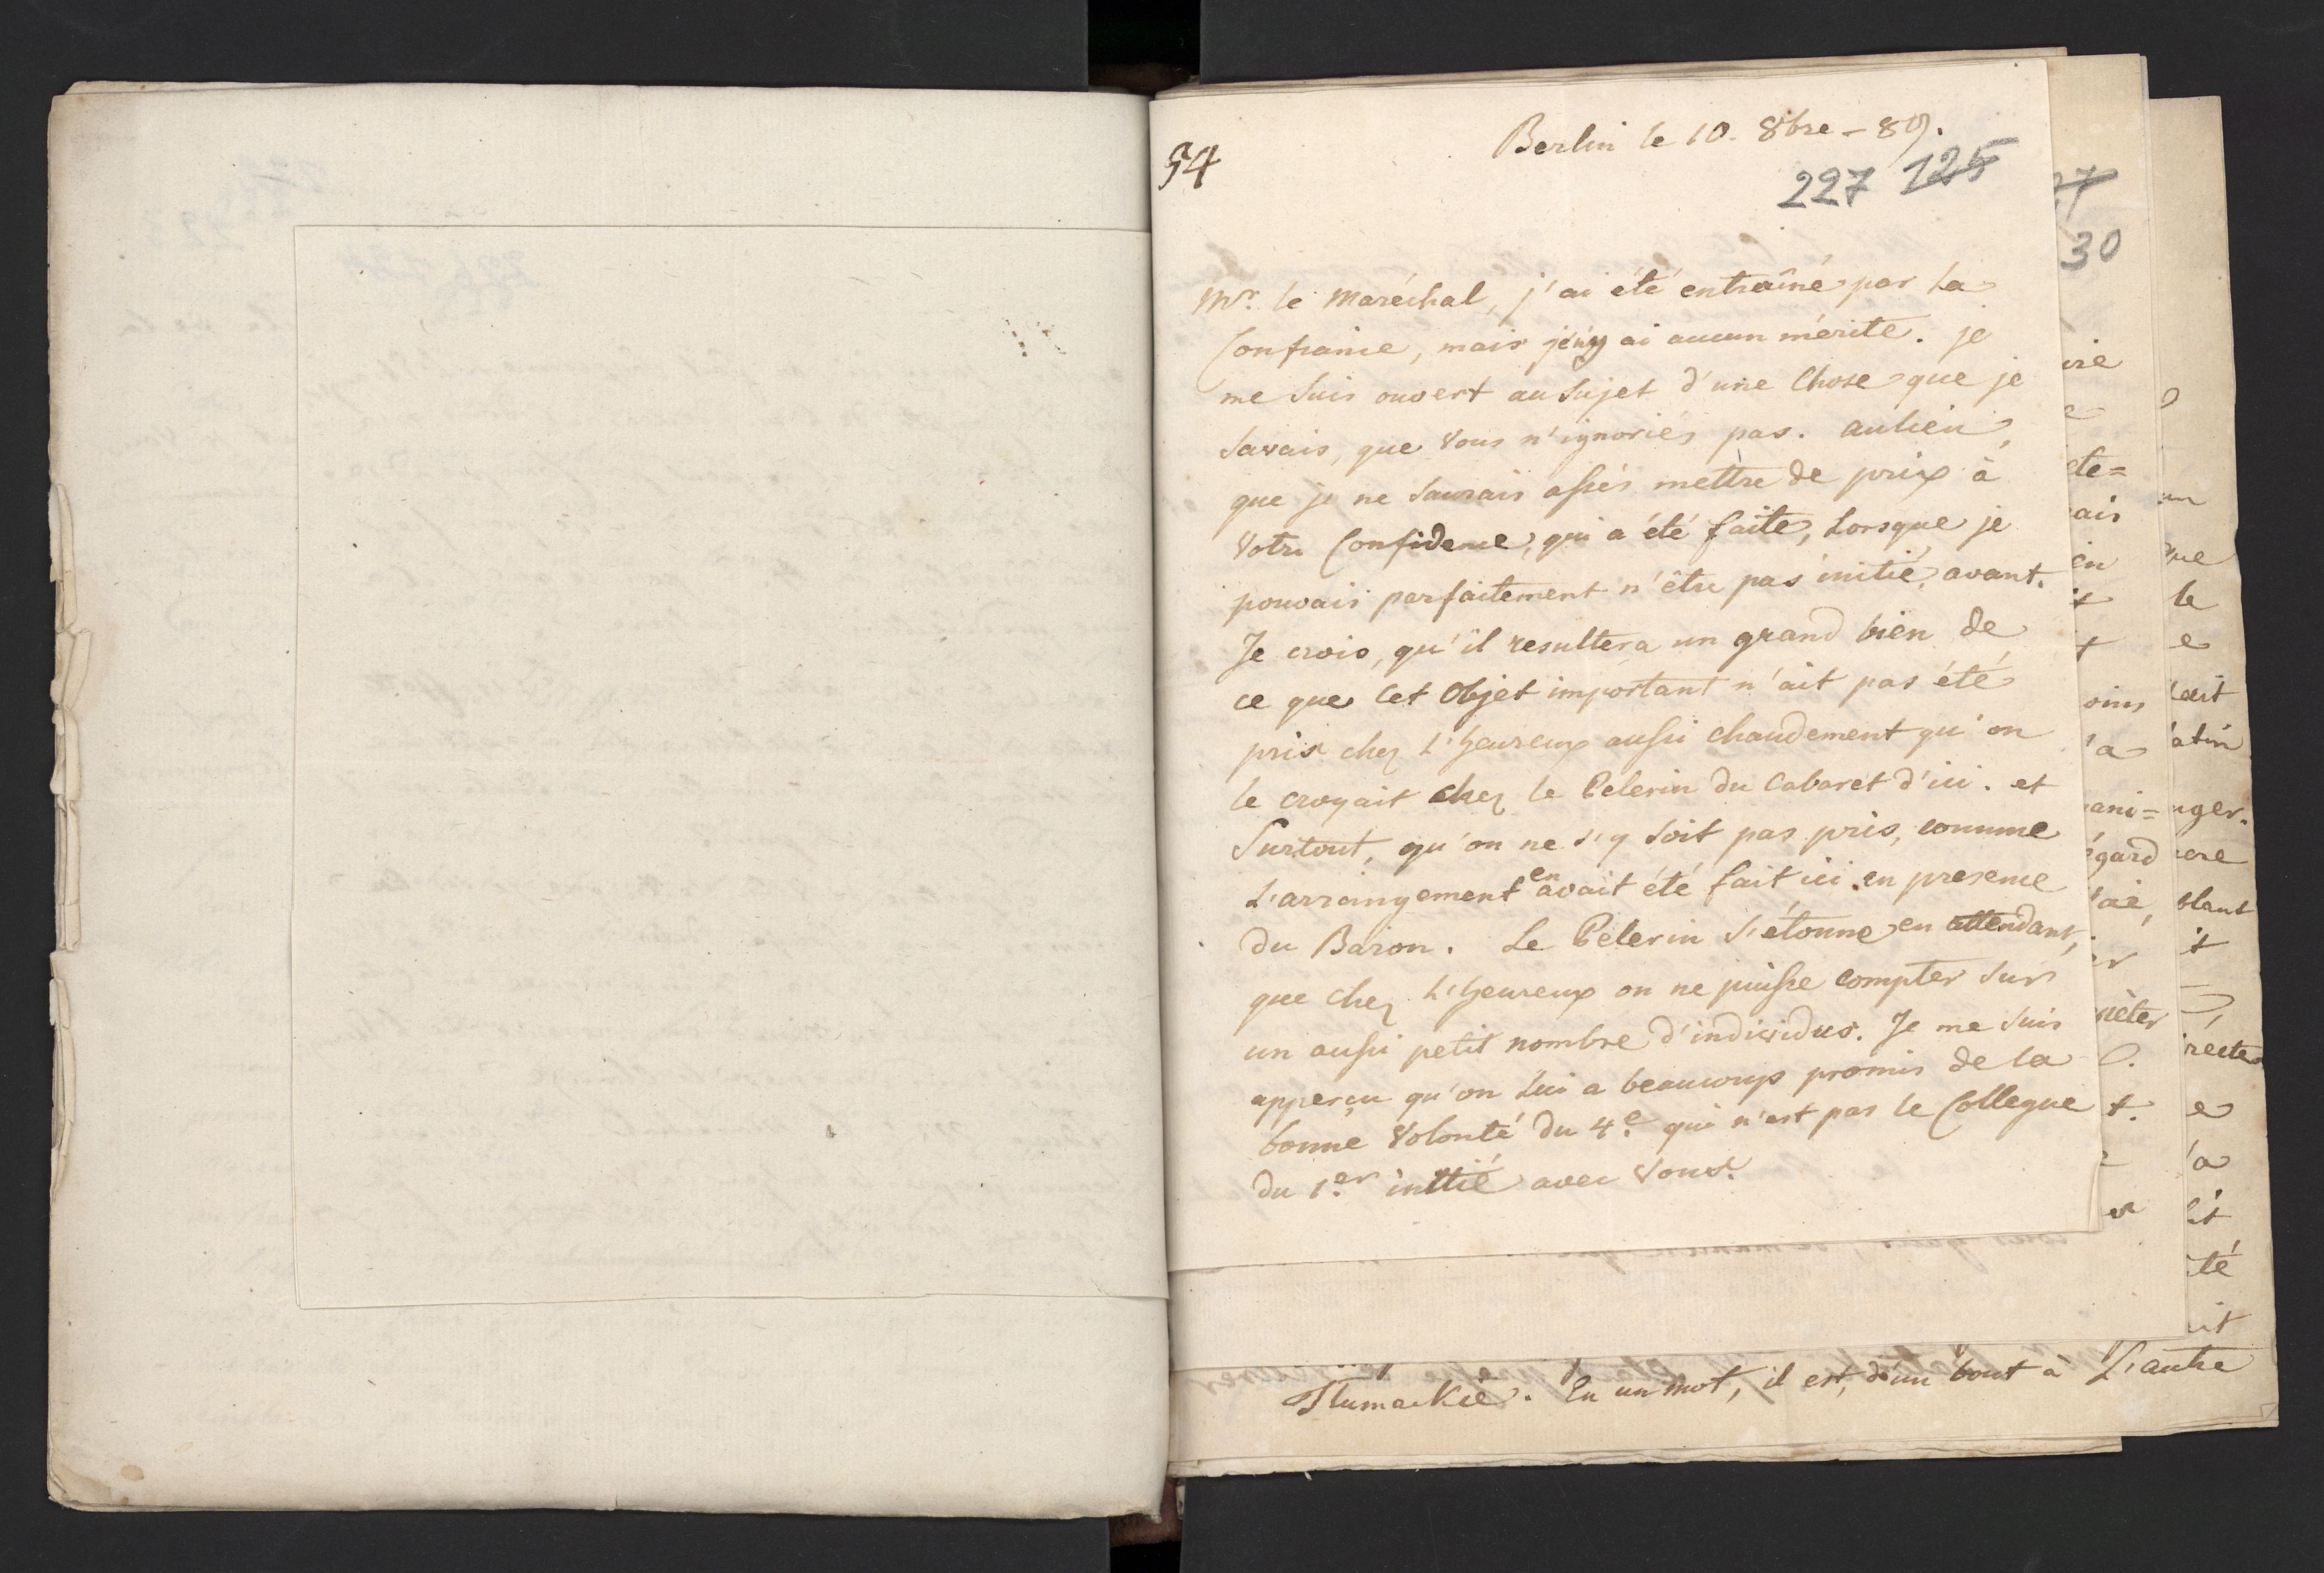 54
Berlin le 10. 8bre - 89.
227 125
Mr. le Maréchal, j'ai été entraîné par la
Confiance, mais je n'y ai aucun mérite. je
me suis ouvert au sujet d'une Chose que je
savais, que Vous n'ignoriés pas. aulieu,
que je ne saurais assés mettre de prix à
Votre Confidence, qui a été faite, Lorsque je
pouvais parfaitement n'être pas initié avant.
Je crois, qu'il resultera un grand bien de
ce que Cet Objet important n'ait pas été
pris chez L'heureux aussi chaudement qu'on
le croyait chez le Pelerin du Cabaret d'ici. et
Surtout, qu'on ne s'y soit pas pris, comme
L'arrangement en avait été fait ici en presence
du Baron. Le Pelerin s'étonne en attendant,
que chez L'heureux on ne puisse compter sur
un aussi petit nombre d'individus. Je me suis
apperçu qu'on Lui a beaucoup promis de la
bonne Volonté du 4e. qui n'est pas le Collegue
du 1er. initié avec Vous.
27
30
ire
e
ete=
ais
en
it
t
oins
a
ani=
égard
aie,
er
rèter
t.
er
un
que
le
e
lait
atin
nger.
ere
blant
it
irecte
e
la
lit
ité
uit
Tlumackie. En un mot, il est, d'un bout à L'autre